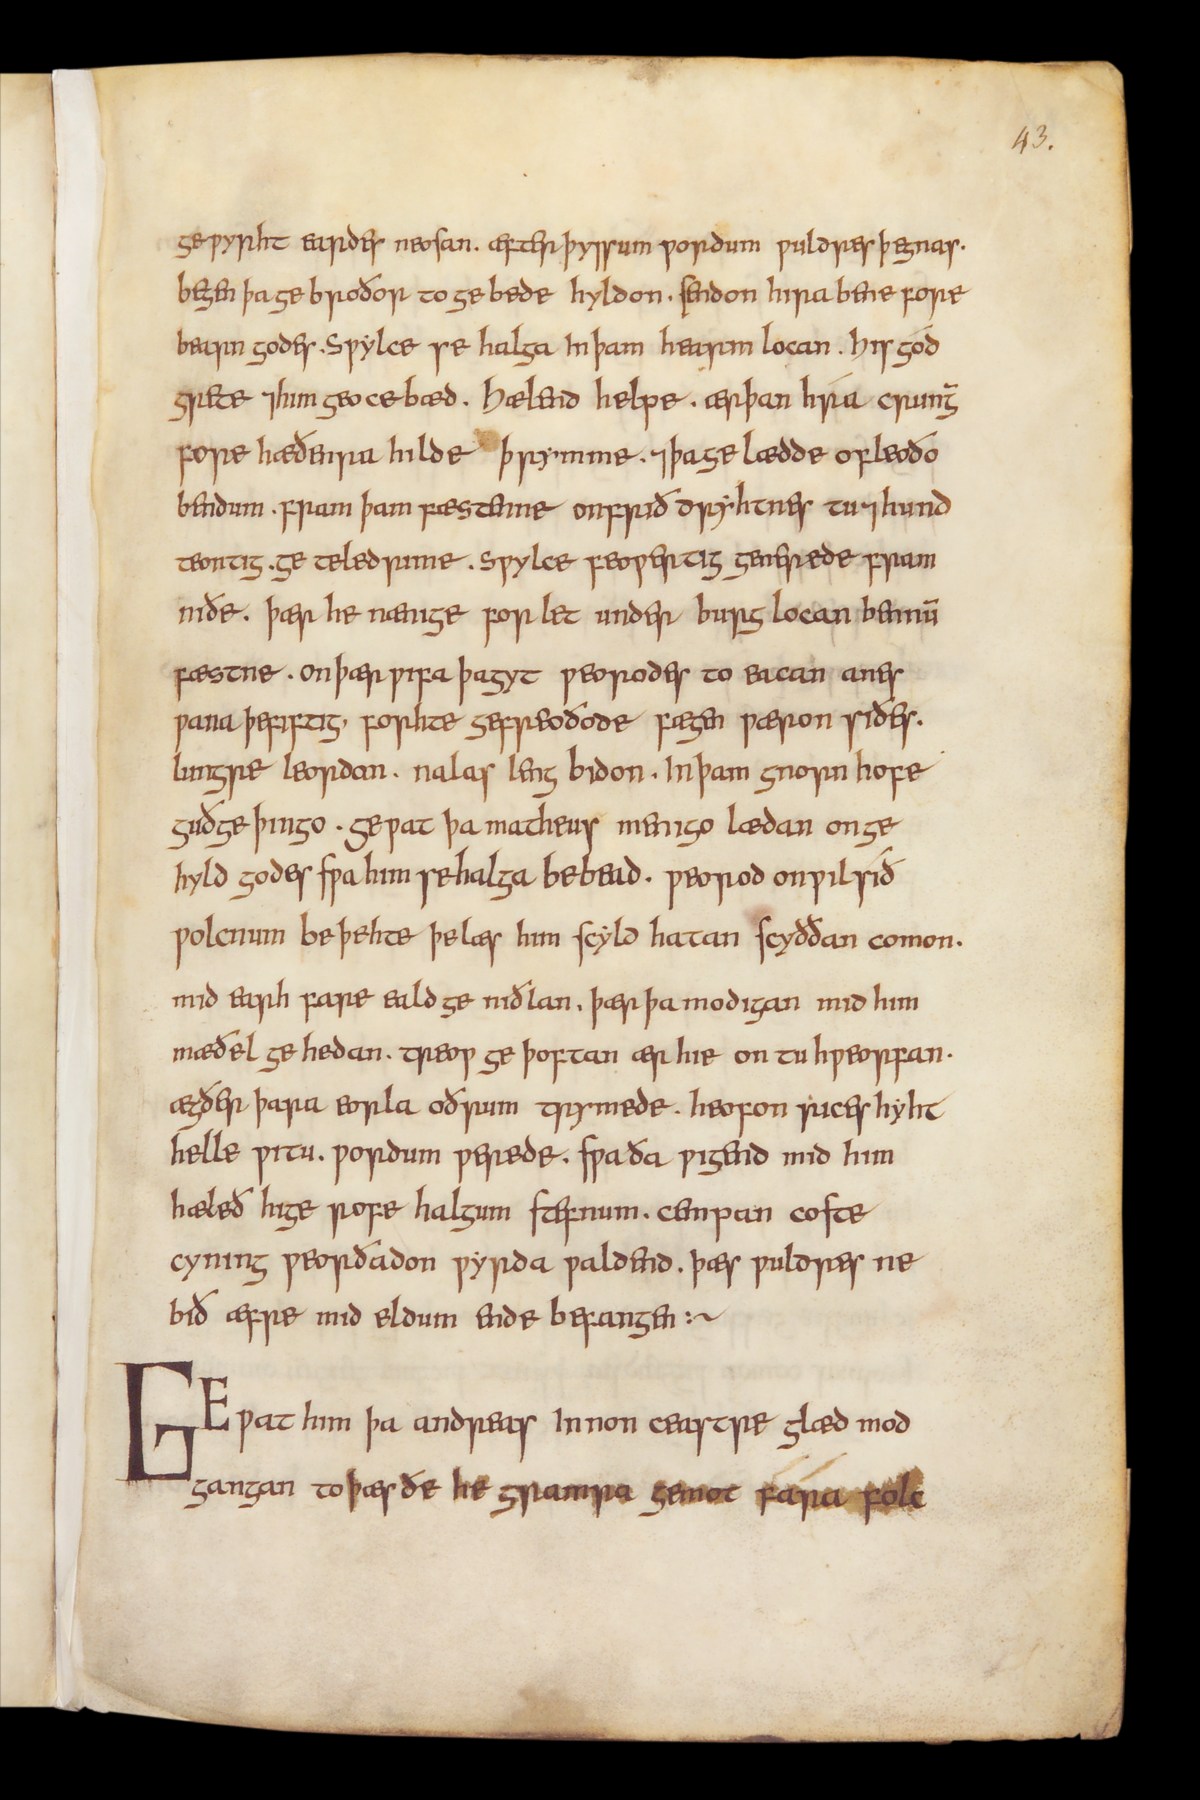 43.
geƿyrht eardes neosan . æfter þyssum ƿordum ƿuldres þegnas .
begen þa gebroðor to gebede hyldon . sendon hira bene fore
bearn godes . Sƿylce se halga In þam hearm locan . His gód
grette ⁊ him geoce bæd . Hælend helpe . ær þan hrá crunḡ
fore hæðenra hilde þrymme . ⁊ þa gelædde of leoðo
bendum . fram þam fæstenne on frið dryhtnes tu ⁊ hund
teontig . geteled rime . sƿylce feoƿertig generede fram
niðe . þær he nænige forlet under burg locan bennū
fæstne . On þær ƿifa þa gyt ƿeorodes to eacan anes
ƿana þe fiftig, forhte gefreoðode fægen ƿæron siðes .
lungre leordan . nalas leng bidon . In þam gnorn hofe
guðgeþingo . geƿat þa matheus menigo lædan on ge
hyld godes sƿa him se halga bebead . ƿeorod on ƿil síð
ƿolcnum beþehte þe læs him scyld hatan scyððan comon .
mid earh fare eald geniðlan . þær þa modigan mid him
mæðel gehedan . treoƿ geþoftan ær hie on tu hƿeorfan .
ægðer þara eorla oðrum trymede . heofon rices hyht
helle ƿitu . ƿordum ƿerede . sƿa ða ƿigend mid him
hæleð hige rofe halgum stefnum . cempan coste
cyning ƿeorðadon ƿyrda ƿaldend . þæs ƿuldres ne
bið æfre mid eldum ende befangen :~
GEƿat him þa andreas Innon ceastre glæd mod
gangan to þæs ðe he gramra gemot fára folc